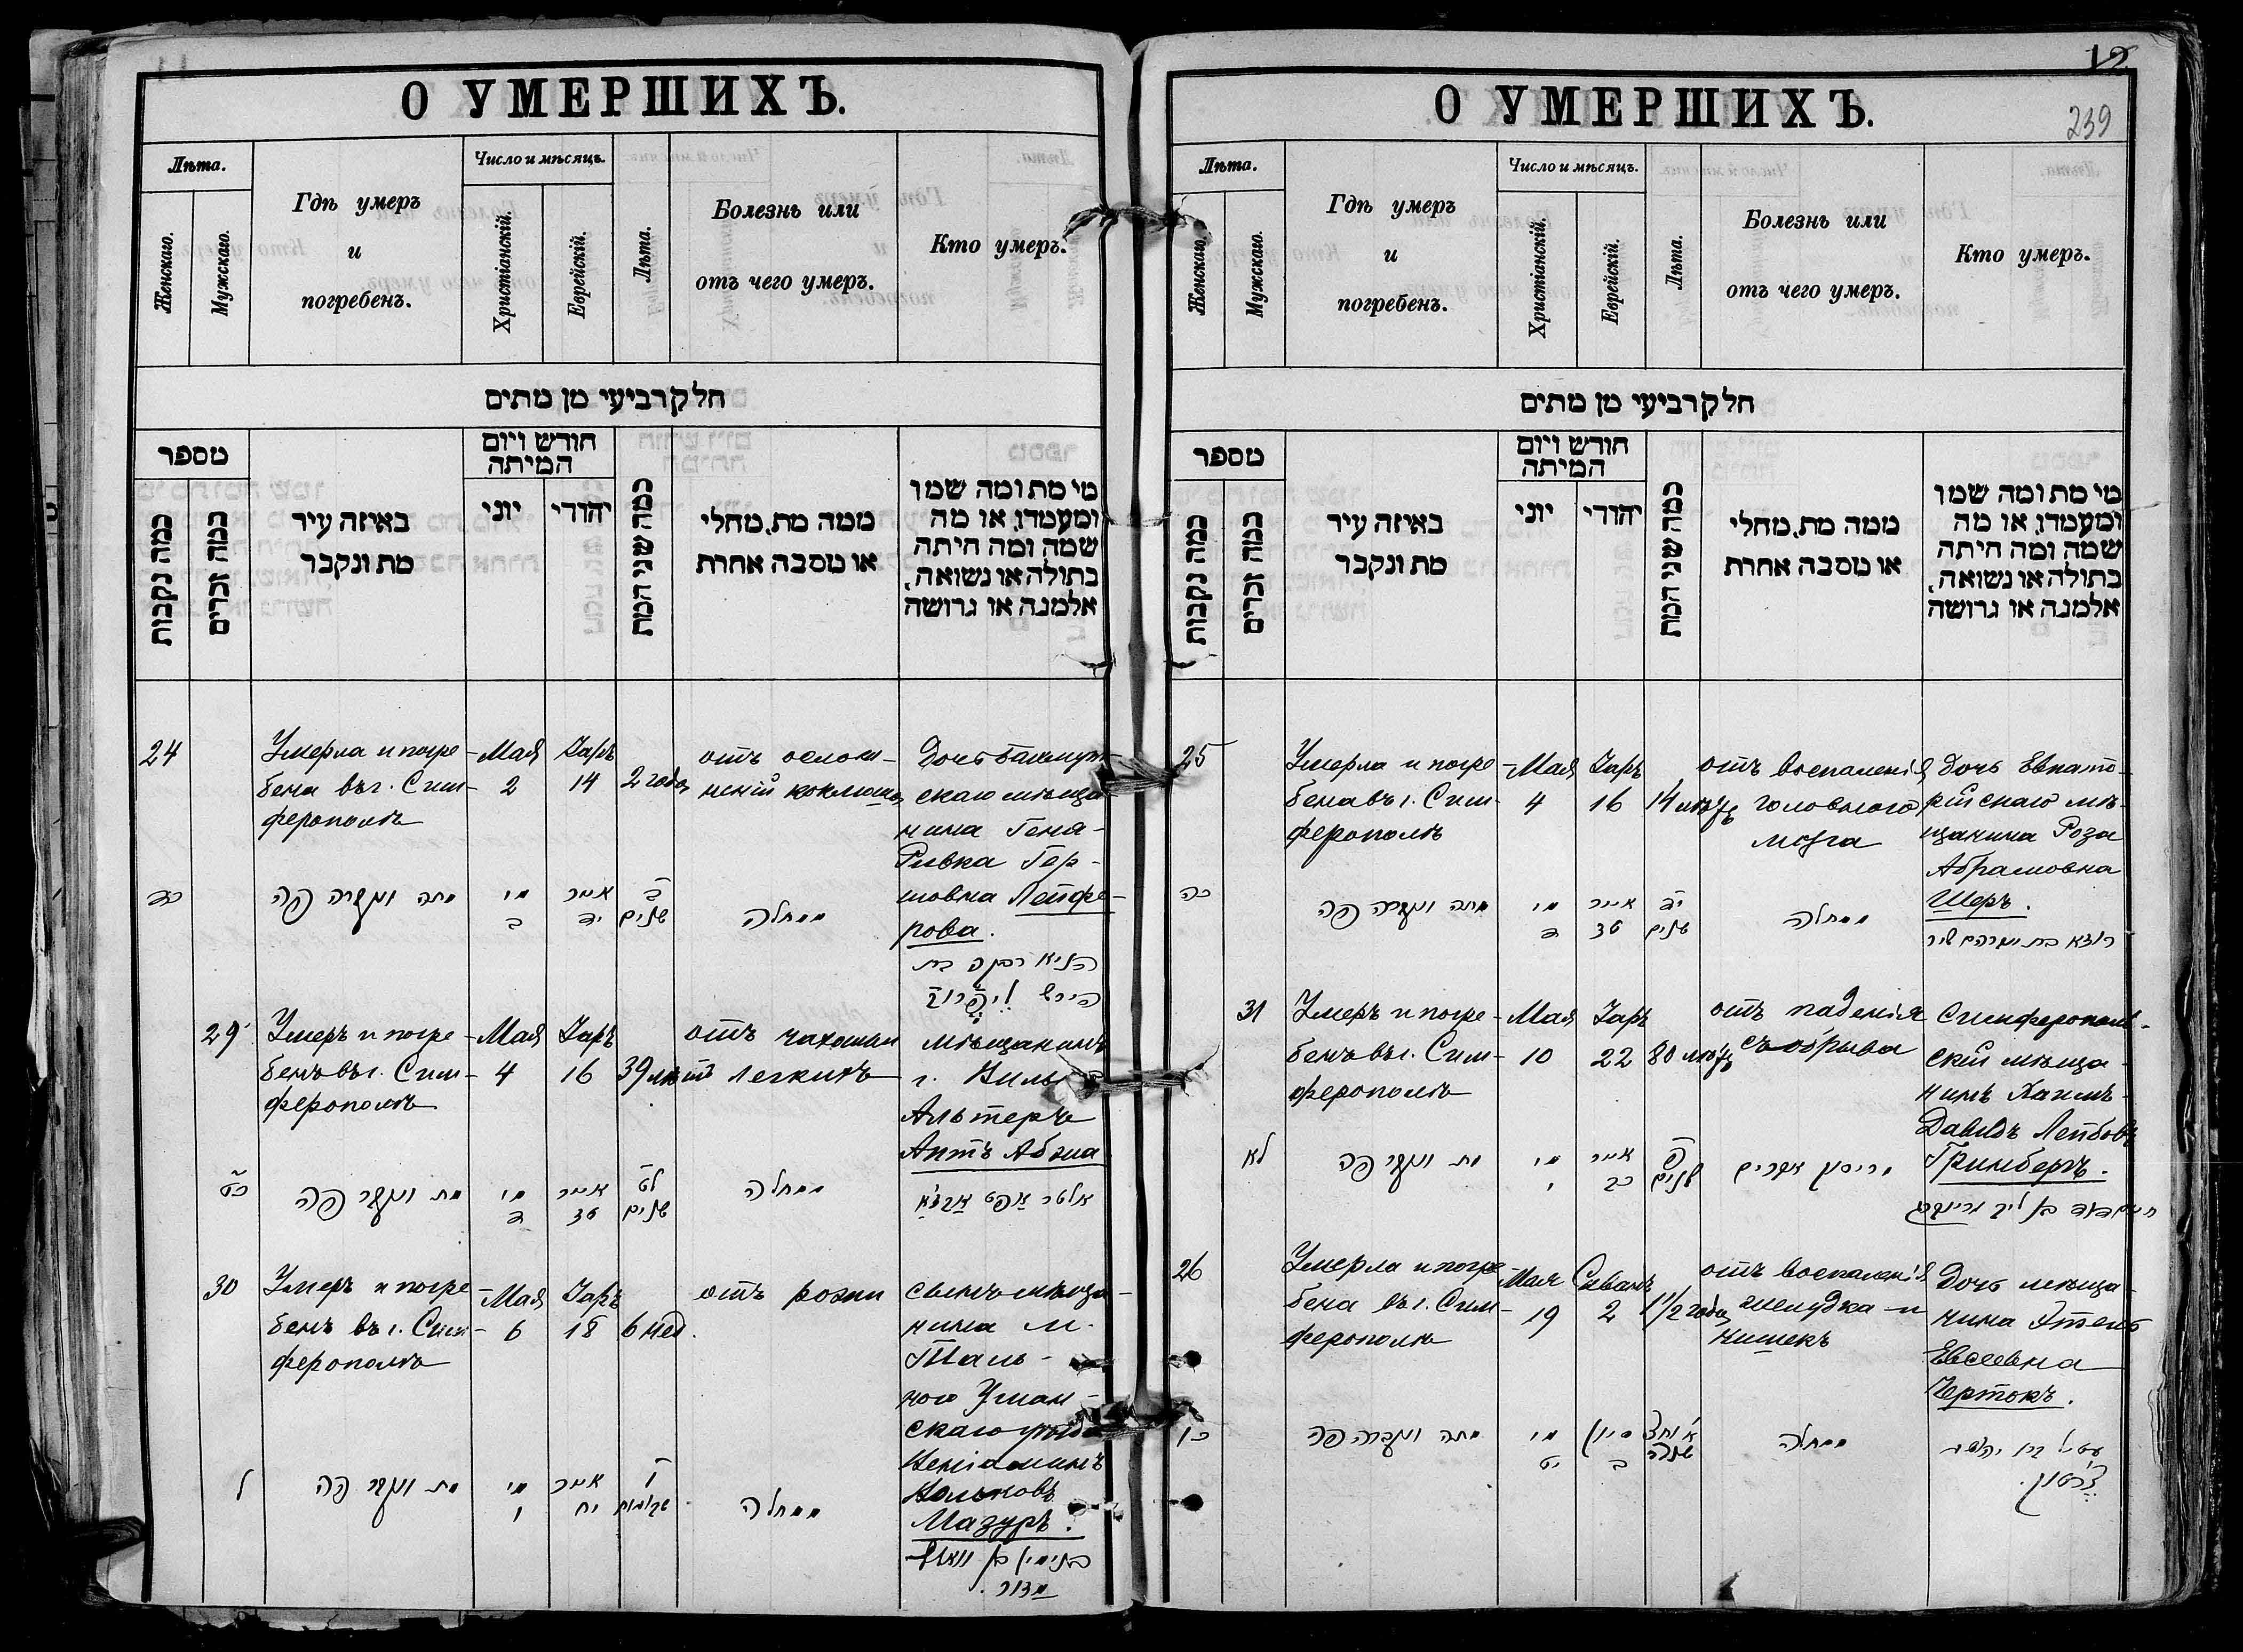 О УМЕРШИХЪ.
Лѣта.
Женскаго.
Мужскаго.
Гдѣ умеръ
и
погребенъ.
Число и мѣсяцъ.
Христіанскій.
Еврейскій.
Лѣта.
Болезнь или
отъ чего умеръ.
Кто умеръ.
חלק רביעי מן מתים
מספר
כמה נקבות
כמה זכרים
באיזה עיר
מת ונקבר
חודש ויום
המיתה
יוני
יהודי
כמה שני המת
ממה מת, מחלי
או מסבה אחרת
מי מת ומה שמו
ומעמדו, או מה
שמה ומה היתה
בתולה או נשואה,
אלמנה או גרושה
24
Умерла и погре-
бена въ г. Сим-
ферополѣ
Мая
2
Іаръ
14
2 года
отъ ослож-
неній коклюша
Дочь Бахмут
скаго мѣща-
нина Геня-
Ривка Гер-
шовна Лейфе-
рова.
כד
מתה ונקברה פה
מי
ב
אייר
יד
ב
שנים
ממחלה
29
Умеръ и погре-
бенъ въ г. Сим-
ферополѣ
Мая
4
Іаръ
16
39 лѣтъ
отъ чахотки
легкихъ
мѣщанинъ
г.
Альтеръ
Аптъ Абзиа
כט
מת ונקבר פה
מי
ד
אייר
טז
לט
שנים
ממחלה
אלטר אפט
30
Умеръ и погре-
бенъ въ г. Сим-
ферополѣ
Мая
6
Іаръ
18
6 нед.
отъ рожи
сынъ мѣща-
нина м.
Таль-
ного Уман-
скаго уѣзда
Веніаминъ
Мазуръ.
ל
מת ונקבר פה
מי
ו
אייר
יח
ו
שבועות
ממחלה
בנימין בן וואלף
מזור.
12
239
О УМЕРШИХЪ.
Лѣта.
Женскаго.
Мужскаго.
Гдѣ умеръ
и
погребенъ.
Число и мѣсяцъ.
Христіанскій.
Еврейскій.
Лѣта.
Болезнь или
отъ чего умеръ.
Кто умеръ.
חלק רביעי מן מתים
מספר
כמה נקבות
כמה זכרים
באיזה עיר
מת ונקבר
חודש ויום
המיתה
יוני
יהודי
כמה שני המת
ממה מת, מחלי
או מסבה אחרת
מי מת ומה שמו
ומעמדו, או מה
שמה ומה היתה
בתולה או נשואה,
אלמנה או גרושה
25
Умерла и погре-
бена въ г. Сим-
ферополѣ
Мая
4
Іаръ
16
14 лѣтъ
отъ воспаленія
головного
мозга
Дочь Евпато-
рійскаго мѣ-
щанина Роза
Абрамовна
Шеръ.
כה
מתה ונקברה פה
מי
ד
אייר
טז
יד
שנים
ממחלה
רוזא בת אברהם שיר
31
Умеръ и погре-
бенъ въ г. Сим-
ферополѣ
Мая
10
Іаръ
22
80 лѣтъ
отъ паденія
съ обрыва
Симферополь-
скій мѣща-
нинъ Хаимъ-
Давидъ Лейбовъ
Гринбергъ.
לא
מת ונקבר פה
מי
י
אייר
כב
פ
שנים
חיים דוד בן ליב גרינברג
26
Умерла и погре-
бена въ г. Сим-
ферополѣ
Мая
19
Сиванъ
2
1 1/2 года
отъ воспаленія
желудка и
кишекъ
Дочь мѣща-
нина Этель
Евсѣевна
Чертокъ.
כו
מתה ונקברה פה
מי
יט
סיון
ב
א וחצי
שנה
ממחלה